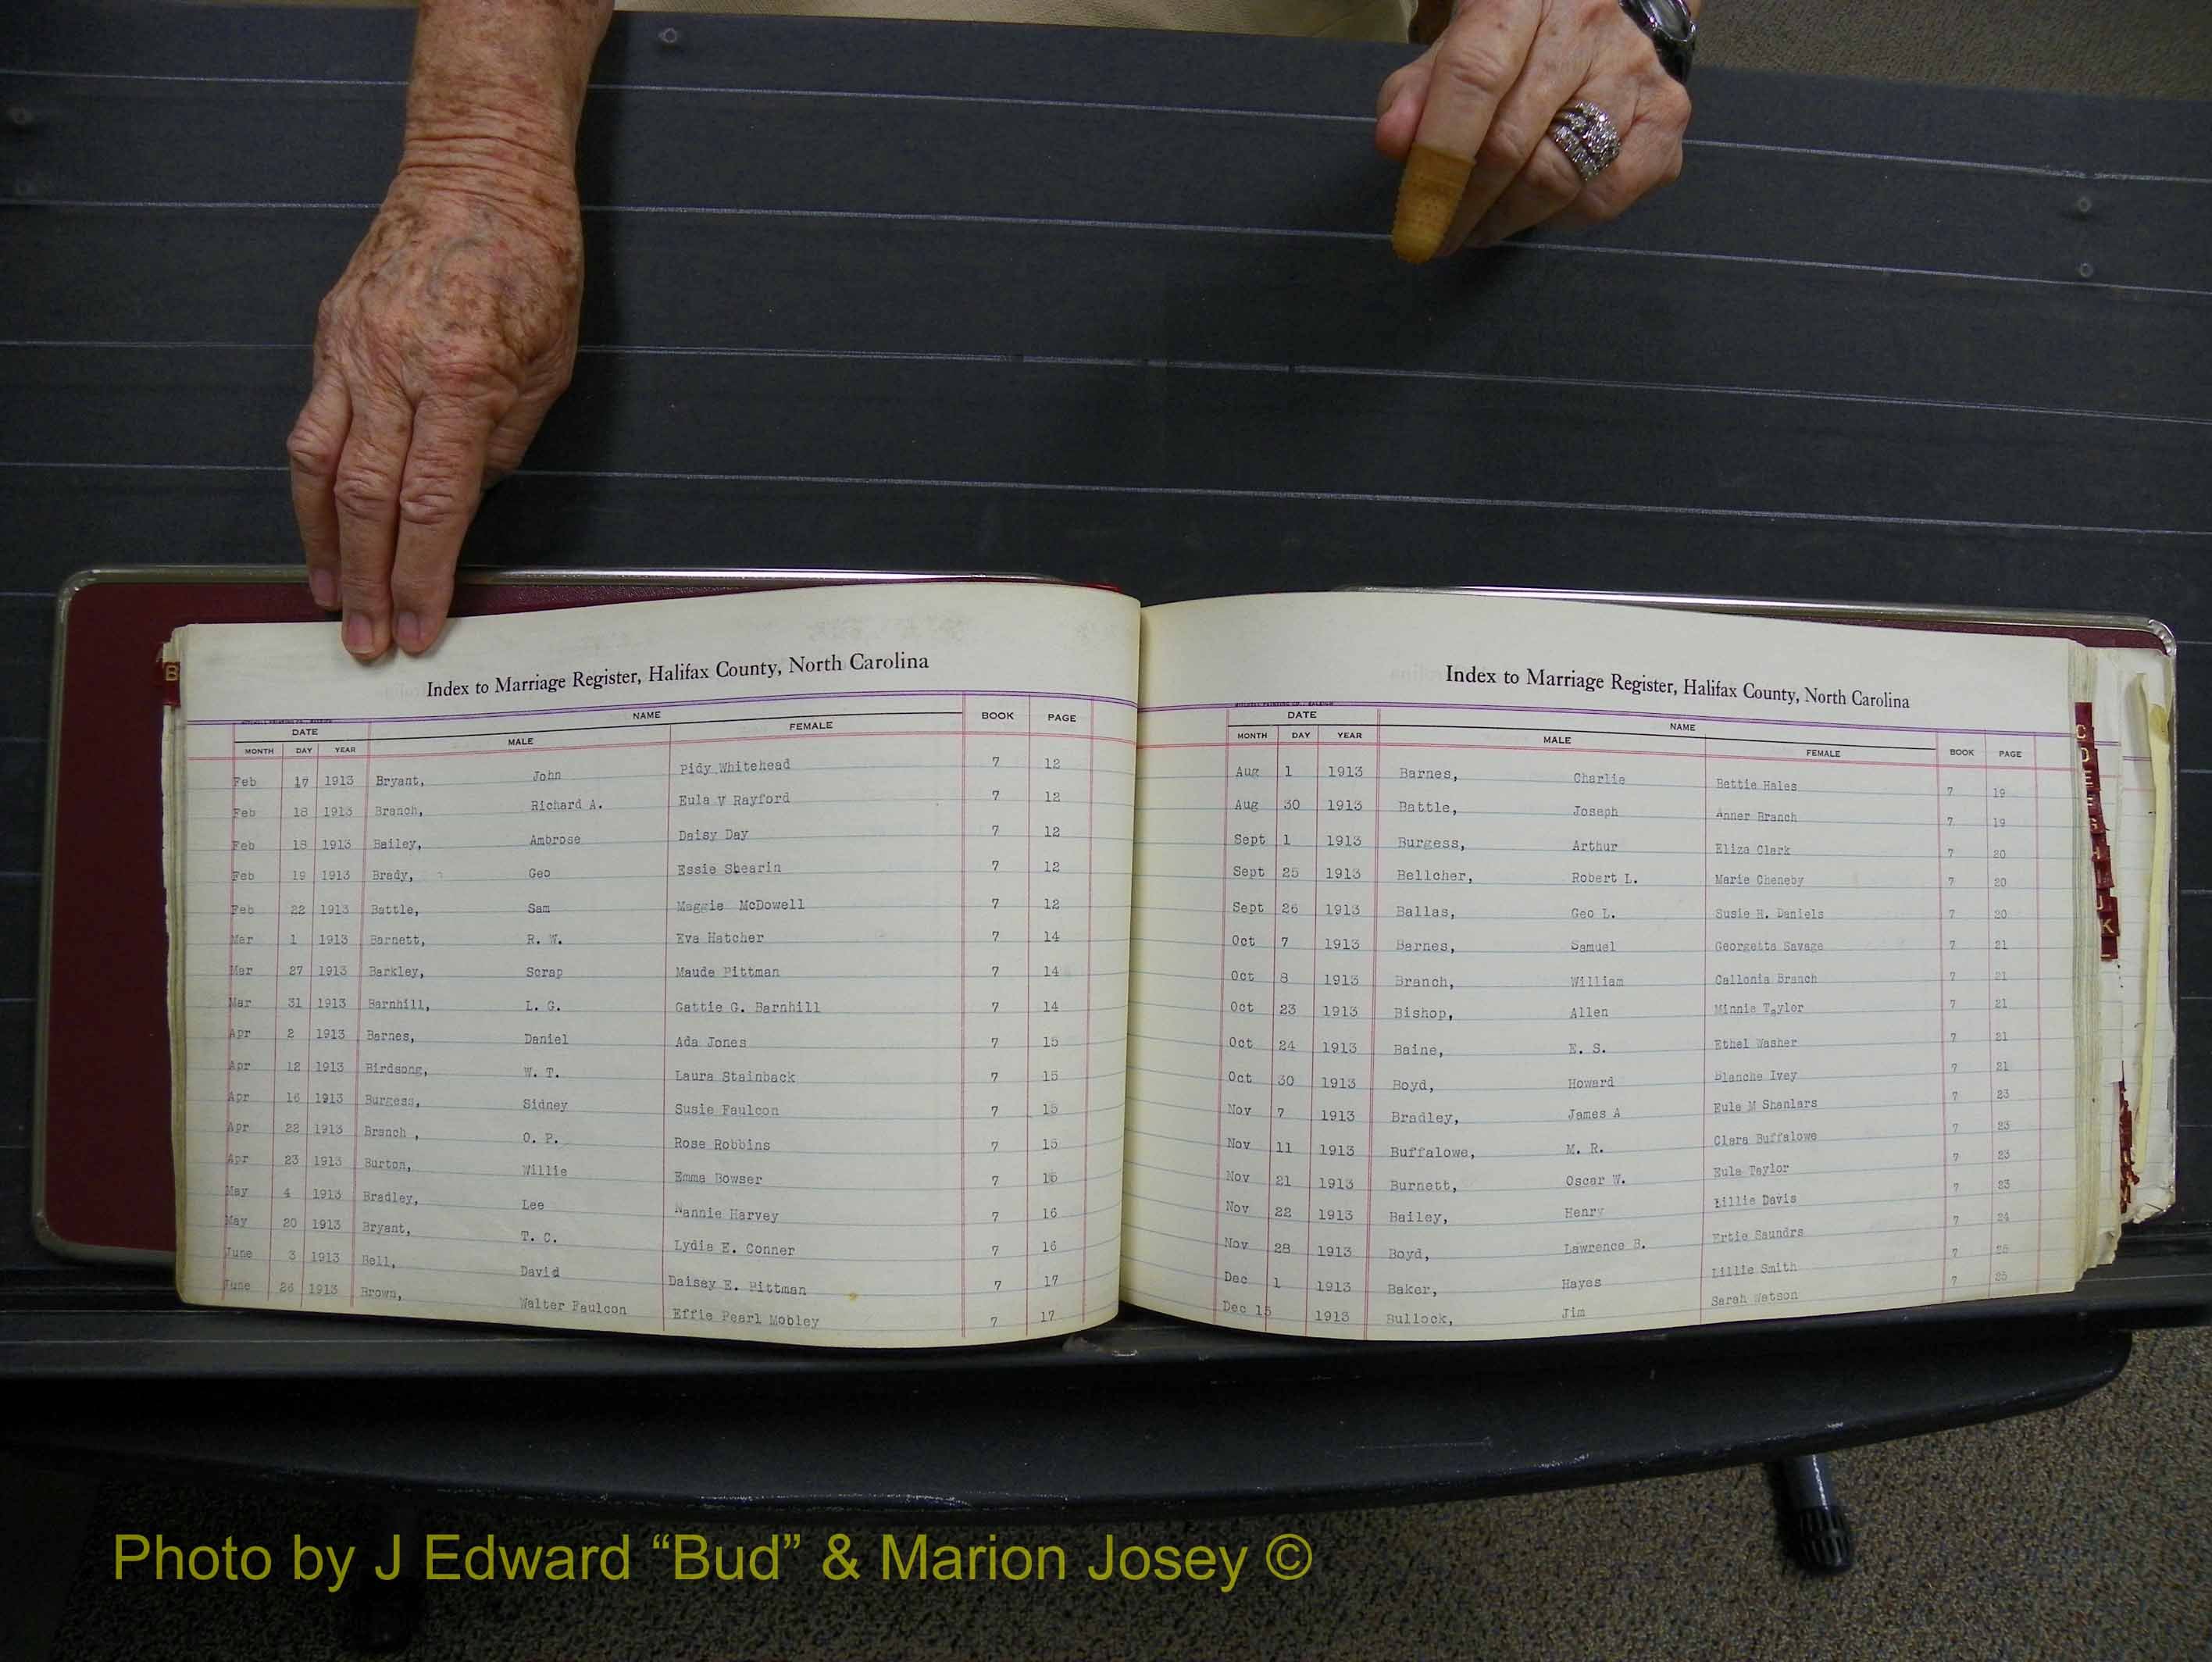 B
Index to Marriage Register, Halifax County, North Carolina
DATE NAME BOOK PAGE
MONTH DAY YEAR MALE FEMALE
Feb 17 1913 Bryant, John Pidy Whitehead 7 12
Feb 18 1913 Branch, Richard A. Eula V Rayford 7 12
Feb 18 1913 Bailey, Ambrose Daisy Day 7 12
Feb 19 1913 Brady, Geo Essie Shearin 7 12
Feb 22 1913 Battle, Sam Maggie McDowell 7 12
Mar 1 1913 Barnett, R. W. Eva Hatcher 7 14
Mar 27 1913 Barkley, Scrap Maude Pittman 7 14
Mar 31 1913 Barnhill, L. G. Gattie G. Barnhill 7 14
Apr 2 1913 Barnes, Daniel Ada Jones 7 15
Apr 12 1913 Birdsong, W. T. Laura Stainback 7 15
Apr 16 1913 Burgess, Sidney Susie Faulcon 7 15
Apr 22 1913 Branch , O. P. Rose Robbins 7 15
Apr 23 1913 Burton, Willie Emma Bowser 7
May 4 1913 Bradley, Lee Nannie Harvey 7 16
May 20 1913 Bryant, T. C. Lydia E. Conner 7 16
June 3 1913 Bell, David Daisey E. Pittman 7 17
June 26 1913 Brown, Walter Faulcon Effie Pearl Mobley 7 17
Index to Marriage Register, Halifax County, North Carolina
DATE NAME
MONTH DAY YEAR MALE FEMALE BOOK PAGE
Aug 1 1913 Barnes, Charlie Bettie Hales 7 19
Aug 30 1913 Battle, Joseph Anner Branch 7 19
Sept 1 1913 Burgess, Arthur Eliza Clark 7 20
Sept 25 1913 Bellcher, Robert L. Marie Cheneby 7 20
Sept 26 1913 Ballas, Geo L. Susie H. Daniels 7 20
Oct 7 1913 Barnes, Samuel Georgetta Savage 7 21
Oct 8 1913 Branch, William Callonia Branch 7 21
Oct 23 1913 Bishop, Allen Minnie Taylor 7 21
Oct 24 1913 Baine, E. S. Ethel Washer 7 21
Oct 30 1913 Boyd, Howard Blanche Ivey 7 21
Nov 7 1913 Bradley, James A Eula M Shanlars 7 23
Nov 11 1913 Buffalowe, M. R. Clara Buffalowe 7 23
Nov 21 1913 Burnett, Oscar W. Eula Taylor 7 23
Nov 22 1913 Bailey, Henry Lillie Davis 7 23
Nov 28 1913 Boyd, Lawrence B. Ertie Saundrs 7 24
Dec 1 1913 Baker, Hayes Lillie Smith 7 25
Dec 15 1913 Bullock, Jim Sarah Watson 7 25
C
D
E
H
J
K
Photo by J Edward “Bud” & Marion Josey ©